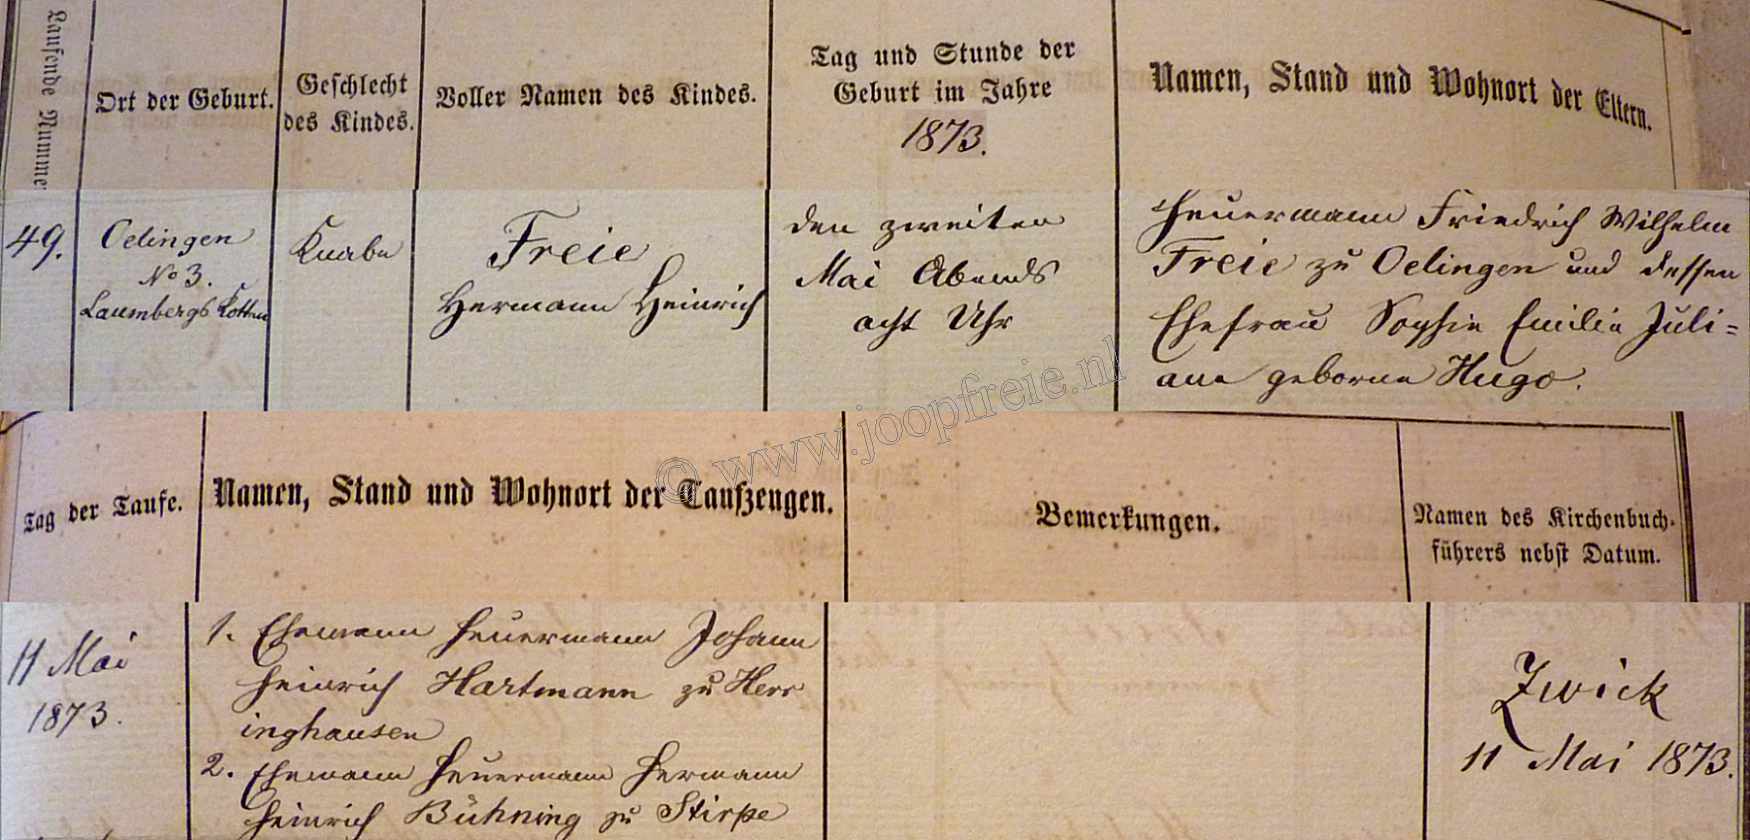 Laufende Nummer
Ort der Geburt.
Geschlecht
des Kindes.
Voller Namen des Kindes.
Tag und Stunde der
Geburt im Jahre
1873.
Namen, Stand und Wohnort der Eltern.
49.
Oelingen
No 3.
Laumbergs Kotten
Knabe
Freie
Hermann Heinrich
den zweiten
Mai Abends
acht Uhr
Heuermann Friedrich Wilhelm
Freie zu Oelingen und dessen
Ehefrau Sophie Emilie Juli=
ane geborne Hugo.
© www.joopfreie.nl
Tag der Taufe.
Namen, Stand und Wohnort der Taufzeugen.
Bemerkungen.
Namen des Kirchenbuch-
führers nebst Datum.
11 Mai
1873.
1. Ehemann Heuermann Johann
Heinrich Hartmann zu Herr
inghausen
2. Ehemann Heuermann Hermann
Heinrich Bühning zu Stirpe
Zwick
11 Mai 1873.